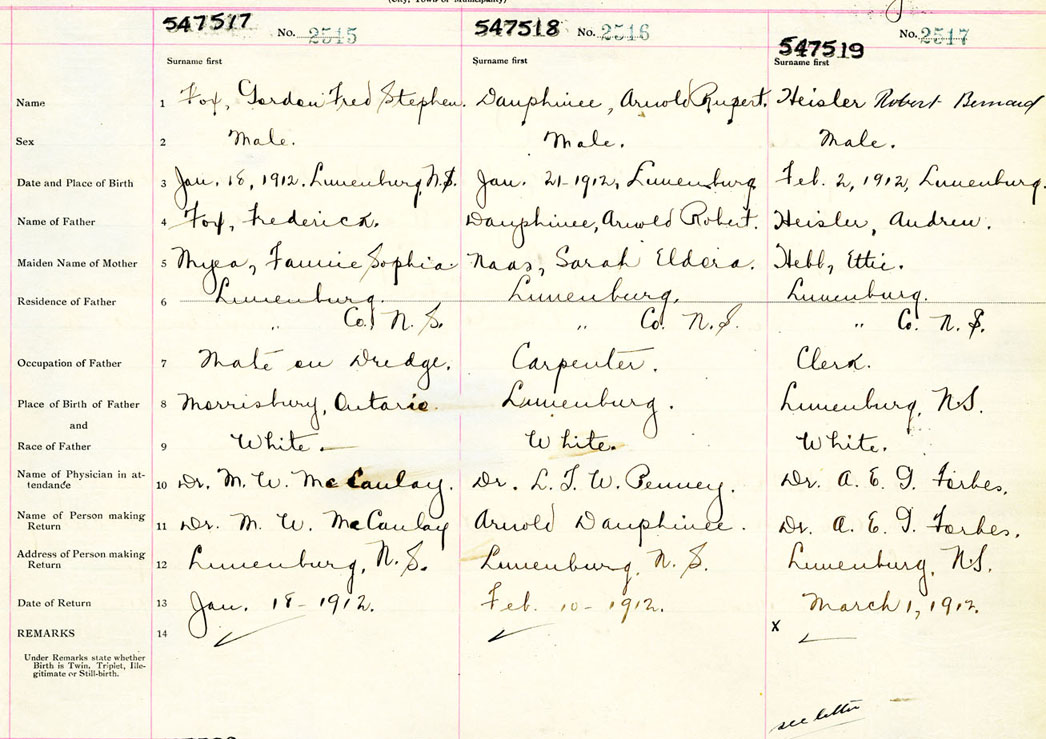 (City, Town or Municipality)
547517 No. 2515 547518 No. 2516 547519 No. 2517
Surname first Surname first Surname first
Name 1 Fox, Gordon Fred Stephen. Dauphinee, Arnold Rupert. Heisler Robert Bernard
Sex 2 Male. Male. Male.
Date and Place of Birth 3 Jan. 18, 1912. Lunenburg, N.S. Jan. 21-1912, Lunenburg Feb. 2, 1912, Lunenburg.
Name of Father 4 Fox, Frederick. Dauphinee, Arnold Robert. Heisler, Andrew.
Maiden Name of Mother 5 Myea, Fannie Sophia. Naas, Sarah Eldora. Hebb, Ettie.
Residence of Father 6 Lunenburg. Lunenburg. Lunenburg.
" Co. N.S. " Co. N.S. " Co. N.S.
Occupation of Father 7 Mate on Dredge. Carpenter. Clerk.
Place of Birth of Father 8 Morrisbury, Ontario. Lunenburg. Lunenburg, N.S.
and
Race of Father 9 White. White. White.
Name of Physician in attendance 10 Dr. M. W. McCaulay. Dr. L. T. W. Penney. Dr. A. E. G. Forbes.
Name of Person making Return 11 Dr. M. W. McCaulay Arnold Dauphinee. Dr. A. E. G. Forbes.
Address of Person making Return 12 Lunenburg, N.S. Lunenburg, N.S. Lunenburg, N.S.
Date of Return 13 Jan. 18-1912. Feb. 10-1912. March 1, 1912.
REMARKS 14 x
Under Remarks state whether
Birth is Twin, Triplet, Ille-
gitimate or Still-birth.
see letter